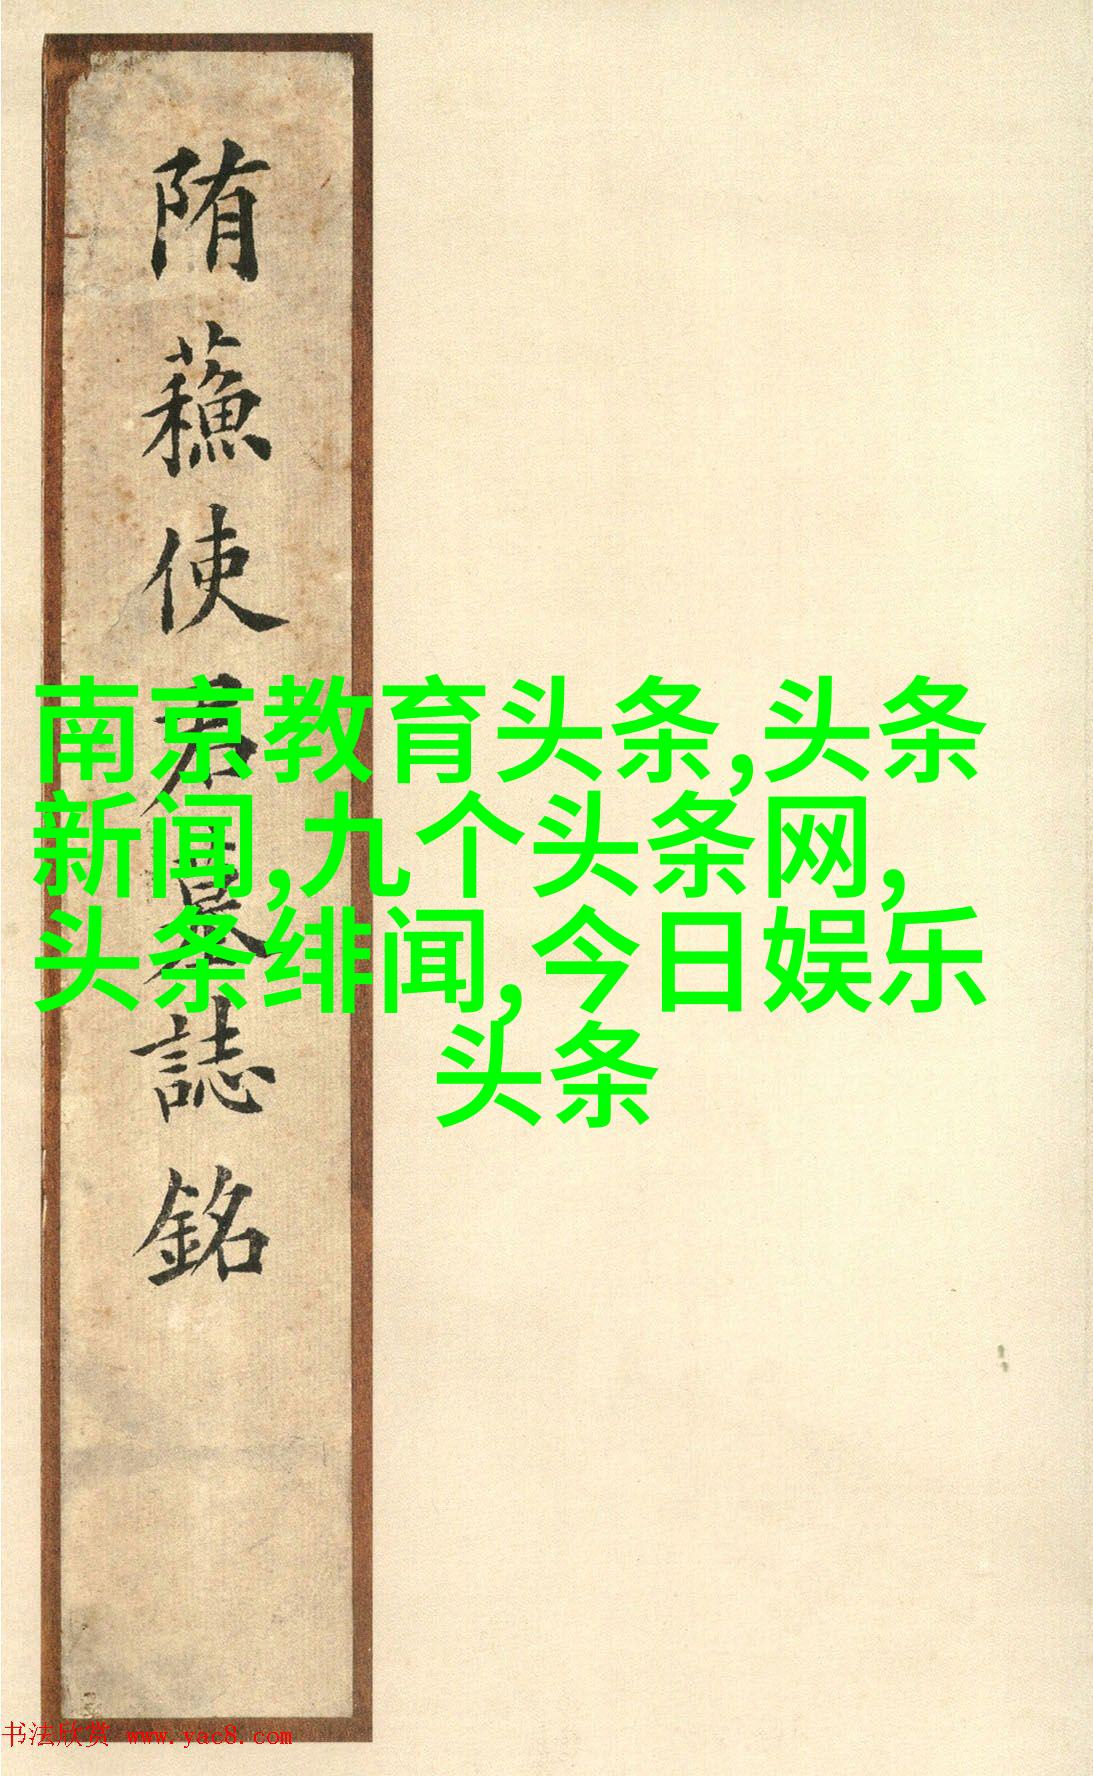 陏蘓使君墓誌銘
南京教育头条,头条
新闻,九个头条网,
头条绯闻,今日娱乐
头条
书法欣赏 www.yac8.com